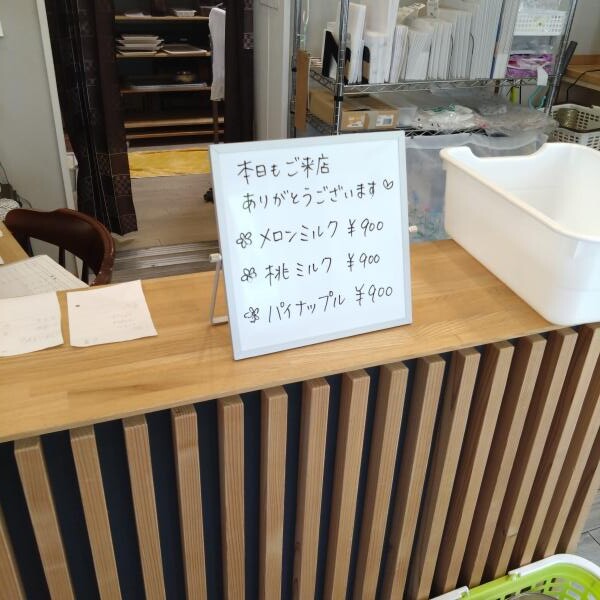 本日もご来店
ありがとうございます♡
メロンミルク ¥900
桃ミルク ¥900
パイナップル ¥900